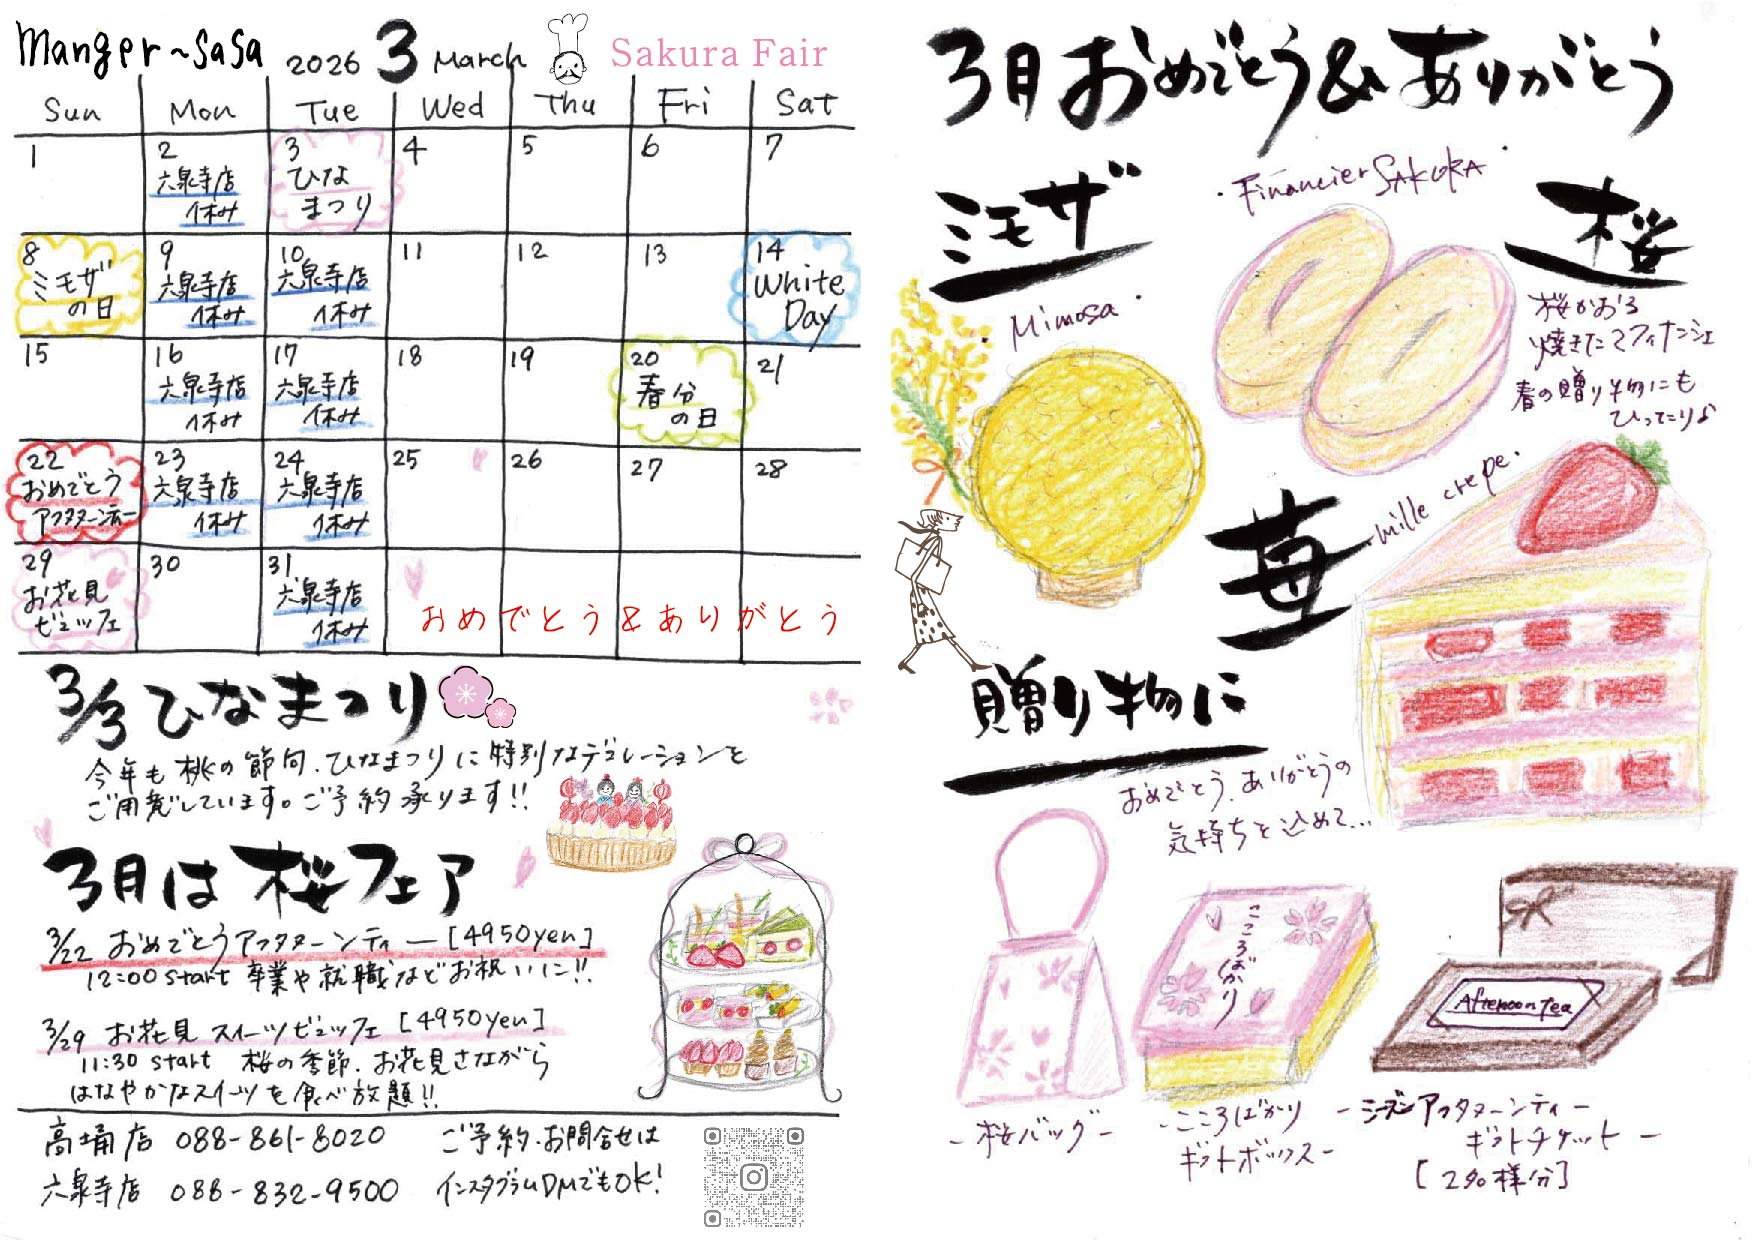 Manger~SaSa 2026 3 March Sakura Fair
Sun Mon Tue Wed Thu Fri Sat
1
2 六泉寺店 休み
3 ひな まつり
4
5
6
7
8 ミモザ の日
9 六泉寺店 休み
10 六泉寺店 休み
11
12
13
14 White Day
15
16 六泉寺店 休み
17 六泉寺店 休み
18
19
20 春分 の日
21
22 おめでとう アフタヌーンティー
23 六泉寺店 休み
24 六泉寺店 休み
25
26
27
28
29 お花見 ビュッフェ
30
31 六泉寺店 休み
おめでとう&ありがとう
3/3 ひなまつり
今年も桃の節句、ひなまつりに特別なデコレーションを
ご用意しています。ご予約承ります!!
3月は桜フェア
3/22 おめでとうアフタヌーンティー [4950yen]
12:00 start 卒業や就職などお祝いに!!
3/29 お花見スイーツビュッフェ [4950yen]
11:30 start 桜の季節、お花見さながら
はなやかなスイーツを食べ放題!!
高埇店 088-861-8020 ご予約・お問合せは
六泉寺店 088-832-9500 インスタグラムDMでもOK!
3月おめでとう&ありがとう
ミモザ
Mimosa
・Financier SAKURA・
桜
桜かおる
焼きたてフィナンシェ
春の贈り物にも
ぴったり♪
苺
・mille crepe・
贈り物に
おめでとう、ありがとうの
気持ちを込めて...
こころばかり
Afternoon Tea
-桜バッグ-
-こころばかり
ギフトボックス-
-シーズンアフタヌーンティー
ギフトチケット-
[2名様分]